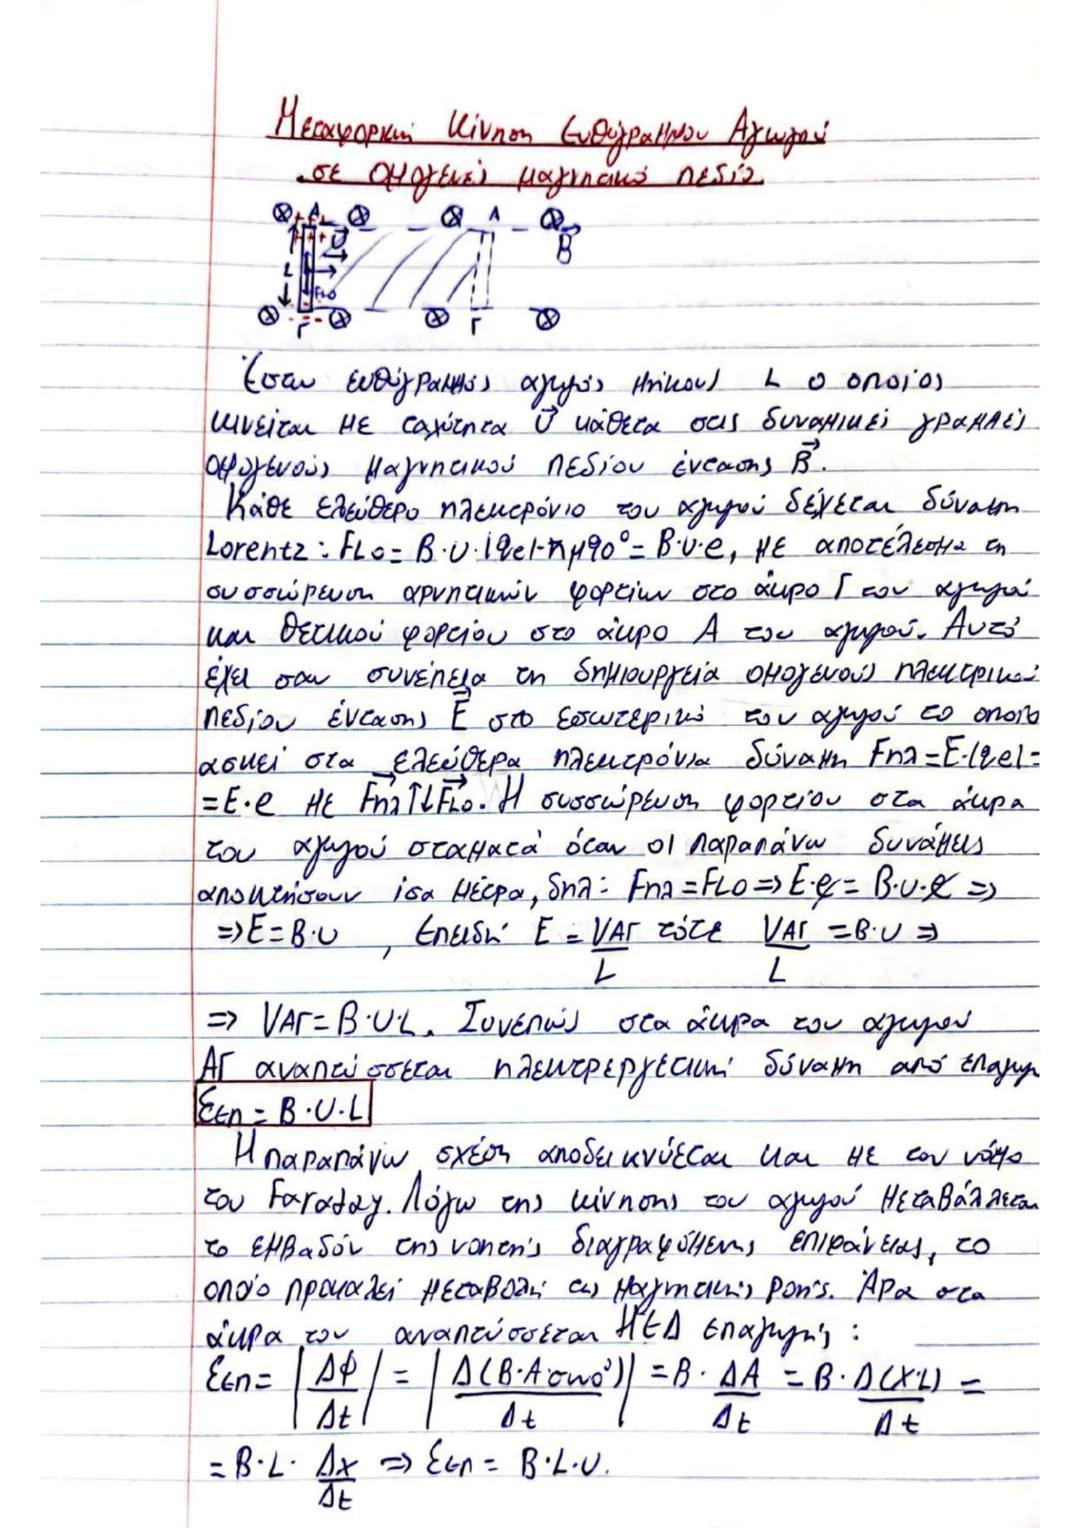 Μεταφορική Κίνηση Ευθύγραμμου Αγωγού
σε ομογενές μαγνητικό πεδίο.
⊗ + Α + ⊗ ⊗ Α ⊗ B
L U FLO
⊗ Γ ⊗ ⊗ Γ ⊗
Έστω ευθύγραμμος αγωγός μήκους L ο οποίος
κινείται με ταχύτητα U κάθετα στις δυναμικές γραμμές
ομογενούς μαγνητικού πεδίου έντασης B.
Κάθε ελεύθερο ηλεκτρόνιο του αγωγού δέχεται δύναμη
Lorentz: FLO = B·U·|qe|·ημ90° = B·U·e, με αποτέλεσμα τη
συσσώρευση αρνητικών φορτίων στο άκρο Γ του αγωγού
και θετικού φορτίου στο άκρο Α του αγωγού. Αυτό
έχει σαν συνέπεια τη δημιουργία ομογενούς ηλεκτρικού
πεδίου έντασης E στο εσωτερικό του αγωγού το οποίο
ασκεί στα ελεύθερα ηλεκτρόνια δύναμη Fηλ=E·|qe|=
=E·e με Fηλ↑↓FLO. Η συσσώρευση φορτίου στα άκρα
του αγωγού σταματά όταν οι παραπάνω δυνάμεις
αποκτήσουν ίσα μέτρα, δηλ: Fηλ=FLO⇒E·e=B·U·e⇒
⇒E=B·U, Επειδή E = VΑΓ/L τότε VΑΓ/L =B·U ⇒
⇒ VΑΓ=B·U·L. Συνεπώς στα άκρα του αγωγού
ΑΓ αναπτύσσεται ηλεκτρεργετική δύναμη από επαγωγή
Eεπ = B·U·L
Η παραπάνω σχέση αποδεικνύεται και με τον νόμο
του Faraday. Λόγω της κίνησης του αγωγού μεταβάλλεται
το εμβαδόν της νοητής διαγραφόμενης επιφάνειας, το
οποίο προκαλεί μεταβολή της μαγνητικής ροής. Άρα στα
άκρα του αναπτύσσεται ΗΕΔ επαγωγής:
Eεπ= |ΔΦ/Δt| = |Δ(B·A·συν0°)/Δt| =B· ΔA/Δt = B· Δ(X·L)/Δt =
= B·L· Δx/Δt ⇒ Eεπ = B·L·U.